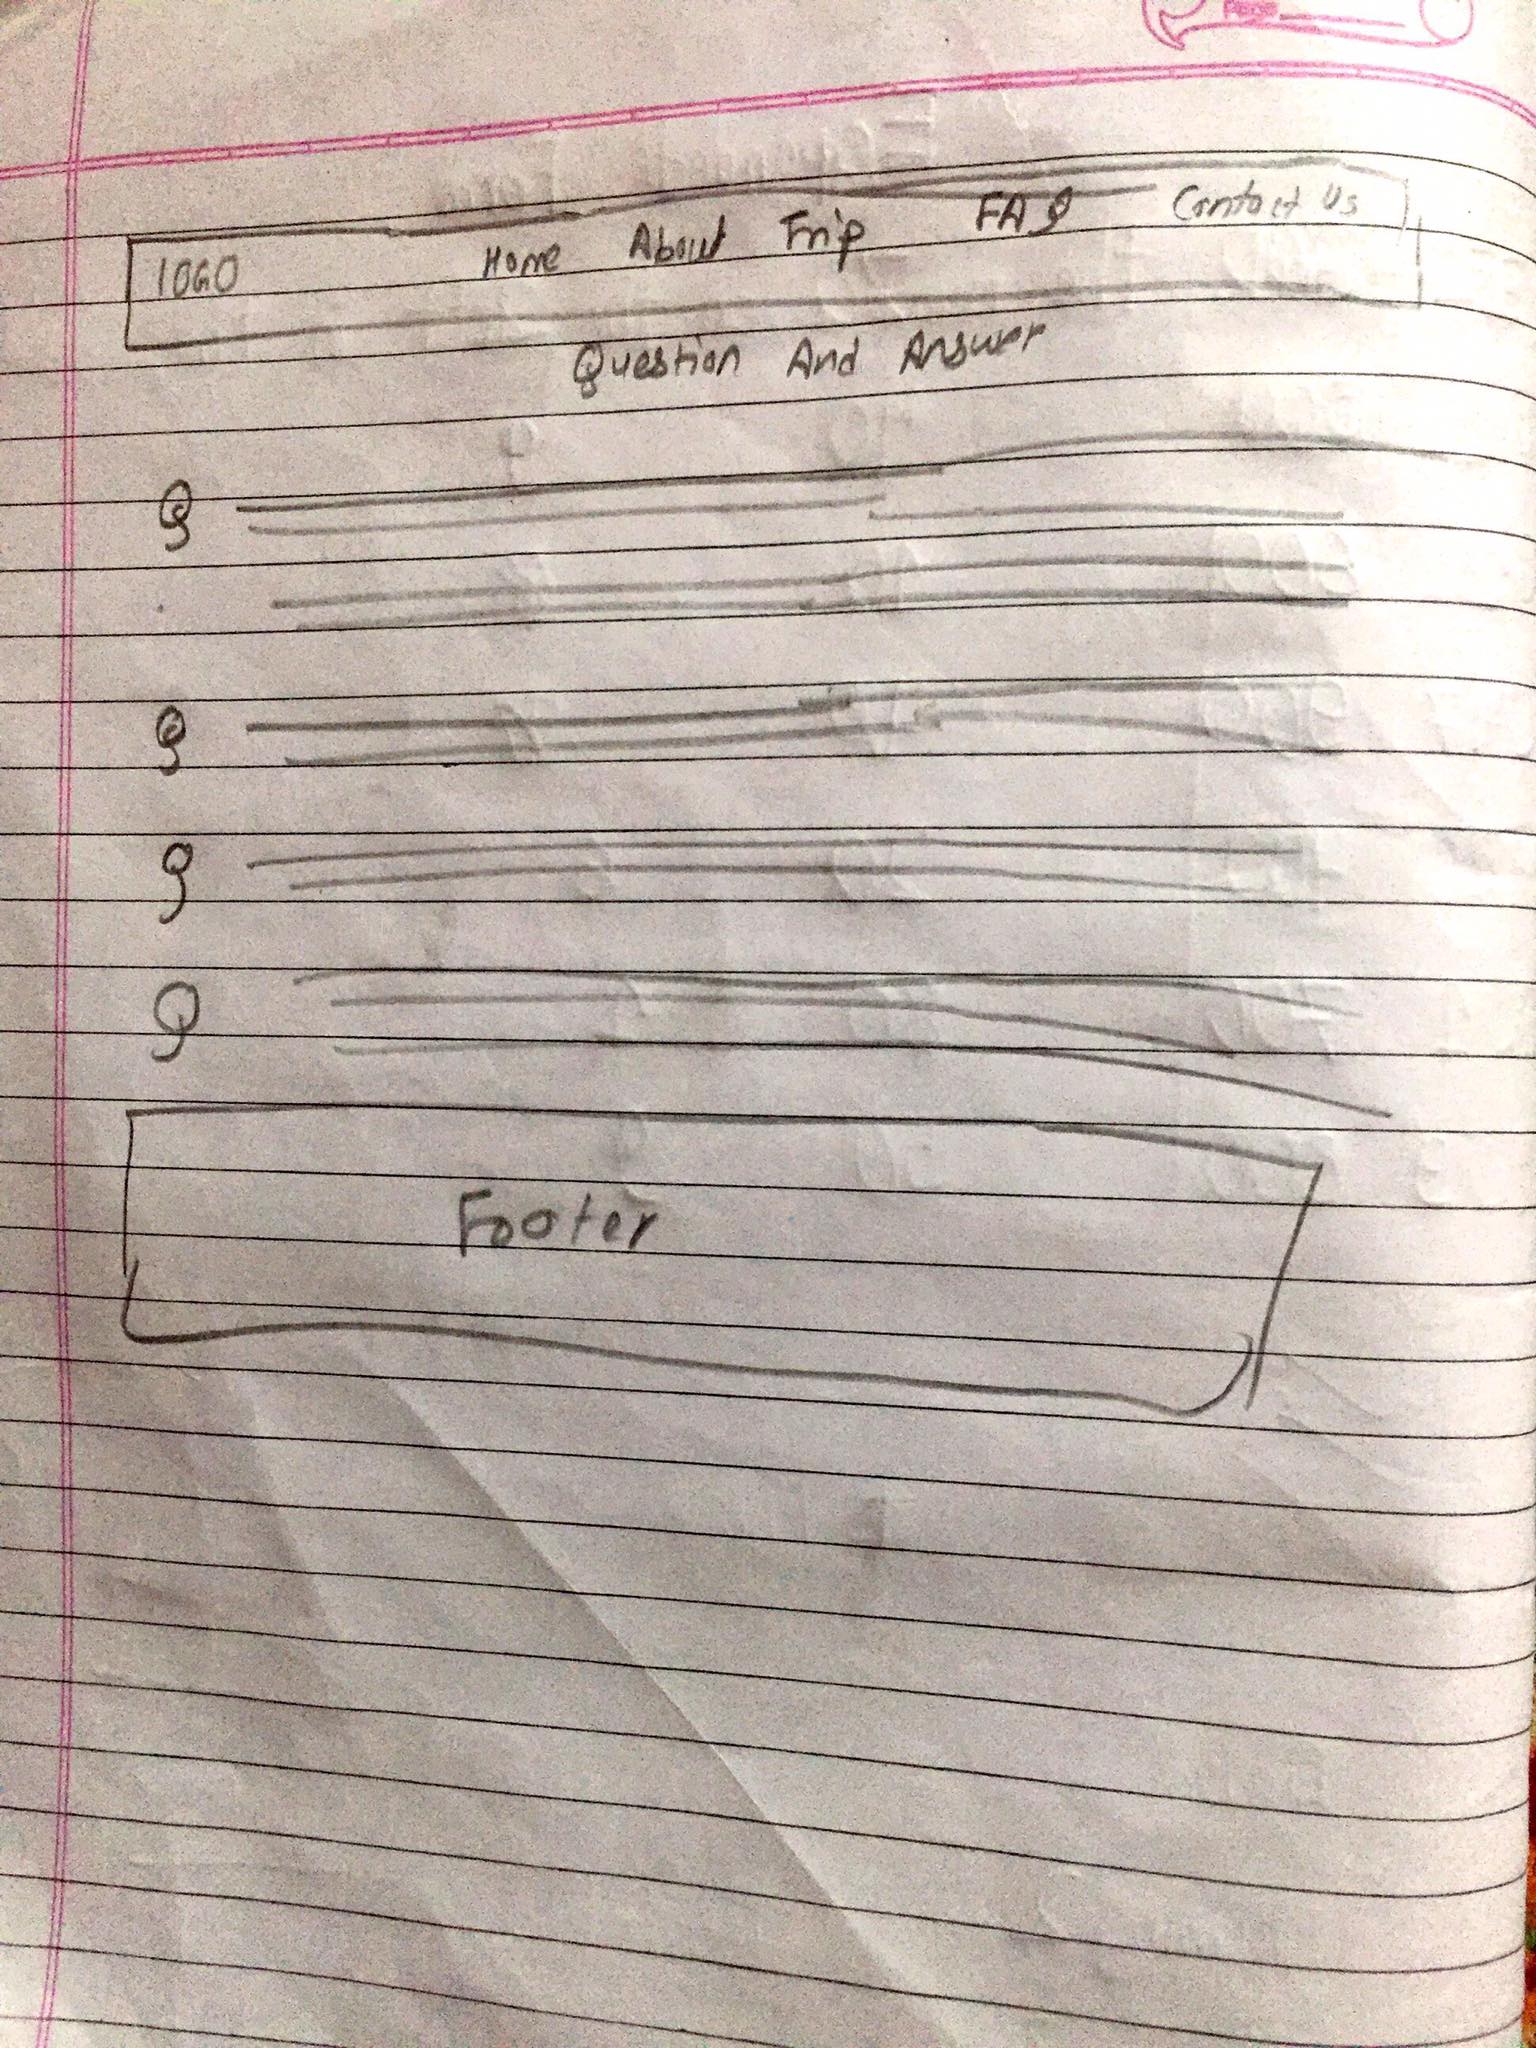 LOGO Home About Trip FAQ Contact Us
Question And Answer
Q
Q
Q
Q
Footer